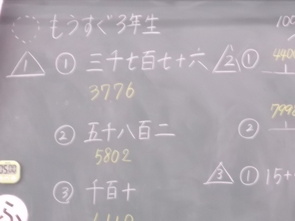 もうすぐ3年生
1 ① 三千七百七十六
3776
② 五千八百二
5802
③ 千百十
2 ①
②
3 ① 15+
ふ